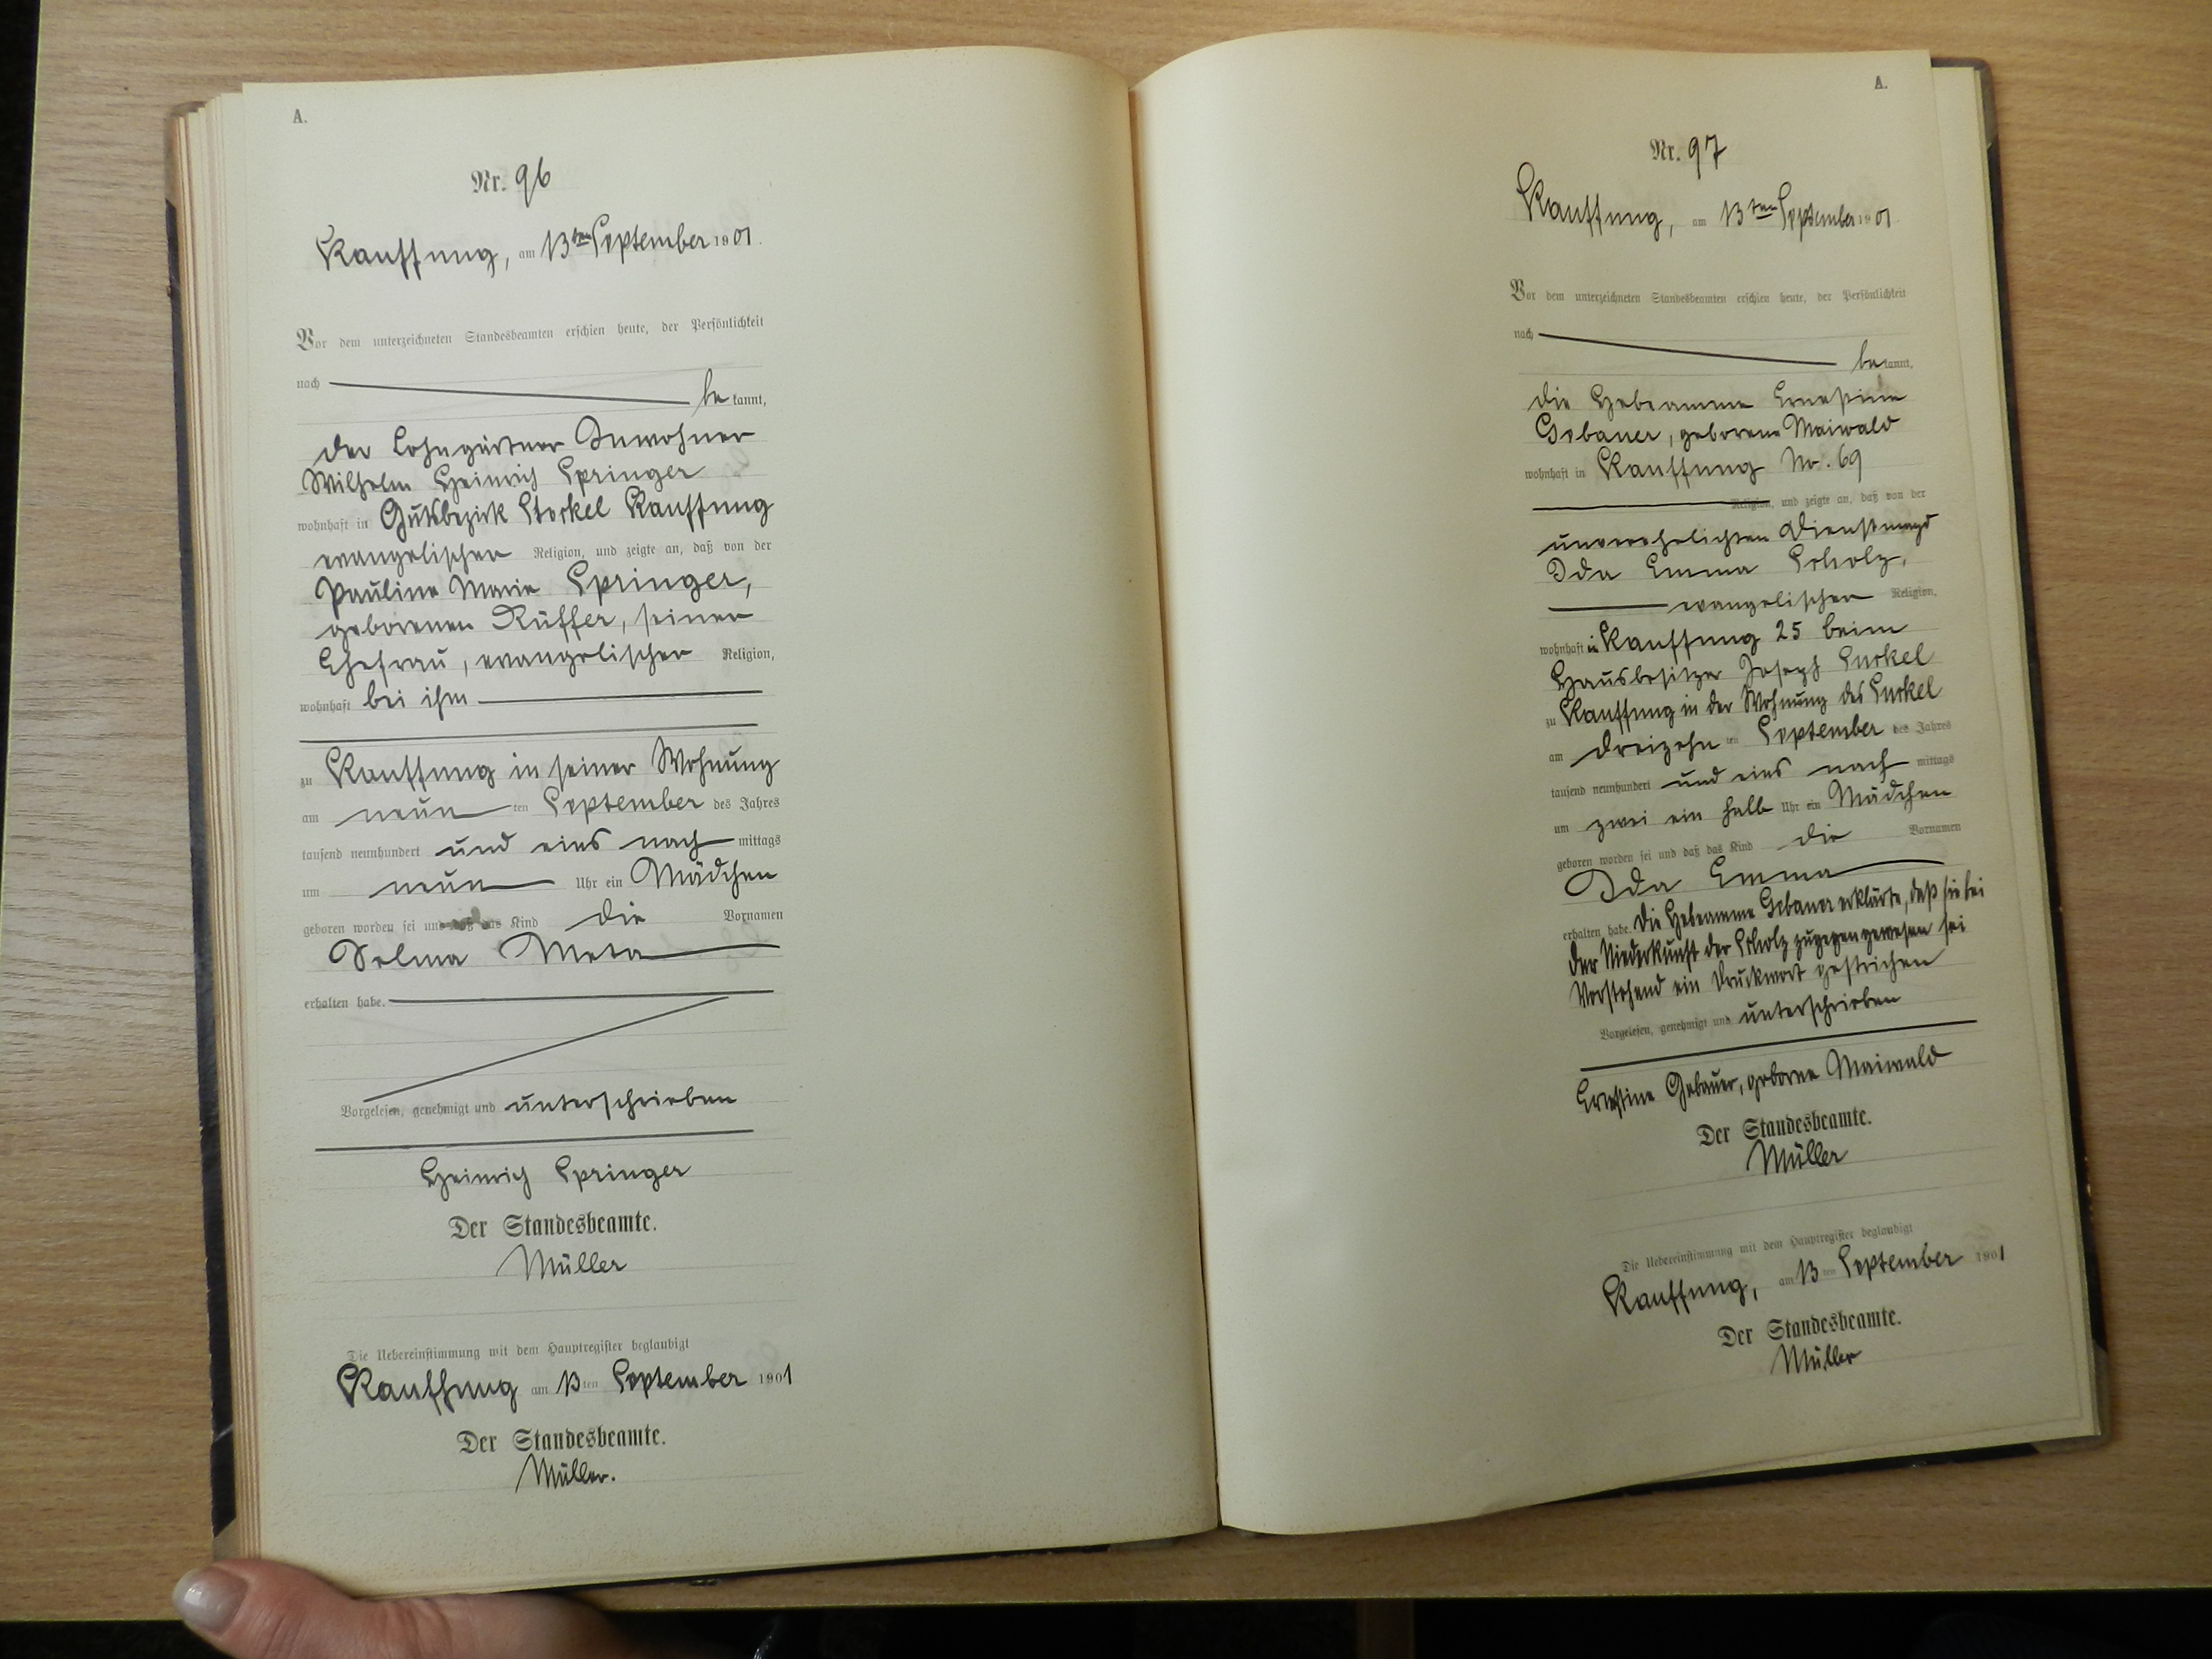 A.
Nr. 96
Kauffung, am 13ten September 1901.
Vor dem unterzeichneten Standesbeamten erschien heute, der Persönlichkeit
nach be kannt,
der Lohngärtner Inwohner
Wilhelm Heinrich Springer
wohnhaft in Gutsbezirk Stöckel Kauffung
evangelischer Religion, und zeigte an, daß von der
Pauline Marie Springer,
geborenen Rüffer, seiner
Ehefrau, evangelischer Religion,
wohnhaft bei ihm
zu Kauffung in seiner Wohnung
am neun ten September des Jahres
tausend neunhundert und eins nach mittags
um neun Uhr ein Mädchen
geboren worden sei und daß das Kind die Vornamen
Selma Meta
erhalten habe.
Vorgelesen, genehmigt und unterschrieben
Heinrich Springer
Der Standesbeamte.
Müller
Die Uebereinstimmung mit dem Hauptregister beglaubigt
Kauffung am 13ten September 1901
Der Standesbeamte.
Müller.
A.
Nr. 97
Kauffung, am 13ten September 1901
Vor dem unterzeichneten Standesbeamten erschien heute, der Persönlichkeit
nach be kannt,
die Hebeamme Ernestine
Gebauer, geborene Maiwald
wohnhaft in Kauffung No. 69
Religion, und zeigte an, daß von der
unverehelichten Dienstmagd
Ida Emma Scholz,
evangelischer Religion,
wohnhaft in Kauffung 25 beim
Hausbesitzer Joseph
zu Kauffung in der Wohnung des
am dreizehn ten September des Jahres
tausend neunhundert und eins nach mittags
um zwei ein halb Uhr ein Mädchen
geboren worden sei und daß das Kind die Vornamen
Ida Emma
erhalten habe. Die Hebeamme Gebauer erklärte, daß sie bei
der Niederkunft der Scholz zugegen gewesen sei
Vorstehend ein Druckwort gestrichen
Vorgelesen, genehmigt und unterschrieben
Ernestine Gebauer, geborne Maiwald
Der Standesbeamte.
Müller
Die Uebereinstimmung mit dem Hauptregister beglaubigt
Kauffung, am 13ten September 1901
Der Standesbeamte.
Müller